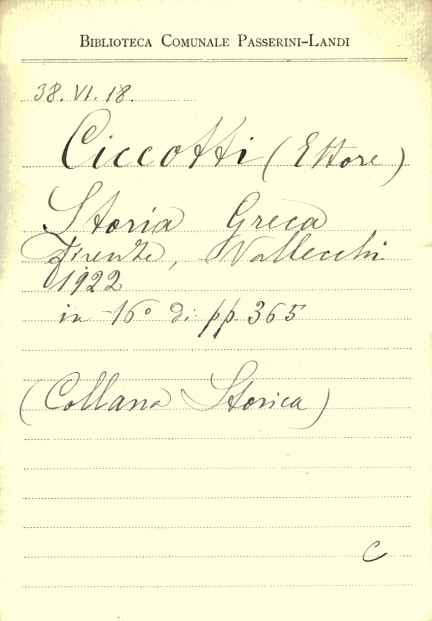 BIBLIOTECA COMUNALE PASSERINI-LANDI
38. VI. 18.
Ciccotti (Ettore)
Storia Greca
Firenze, Vallecchi
1922
in -16° di pp 365
(Collana Storica)
C